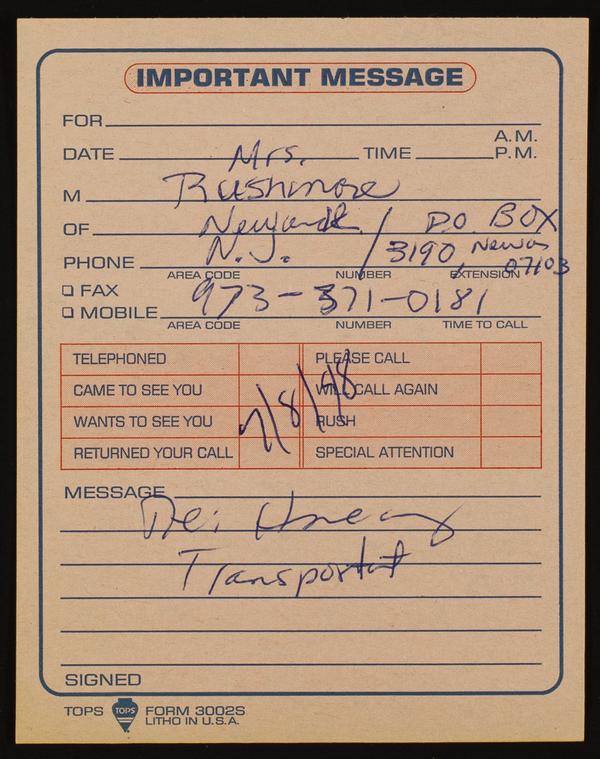 IMPORTANT MESSAGE
FOR
A.M.
DATE Mrs. TIME P.M.
M Rushmore
OF Newark / P.O. BOX
PHONE N.J. 3190, Newark 07103
AREA CODE NUMBER EXTENSION
FAX 973-371-0181
MOBILE
AREA CODE NUMBER TIME TO CALL
TELEPHONED PLEASE CALL
CAME TO SEE YOU WILL CALL AGAIN
7/8/98
WANTS TO SEE YOU RUSH
RETURNED YOUR CALL SPECIAL ATTENTION
MESSAGE
Re:
Transportat
SIGNED
TOPS TOPS FORM 3002S
LITHO IN U.S.A.